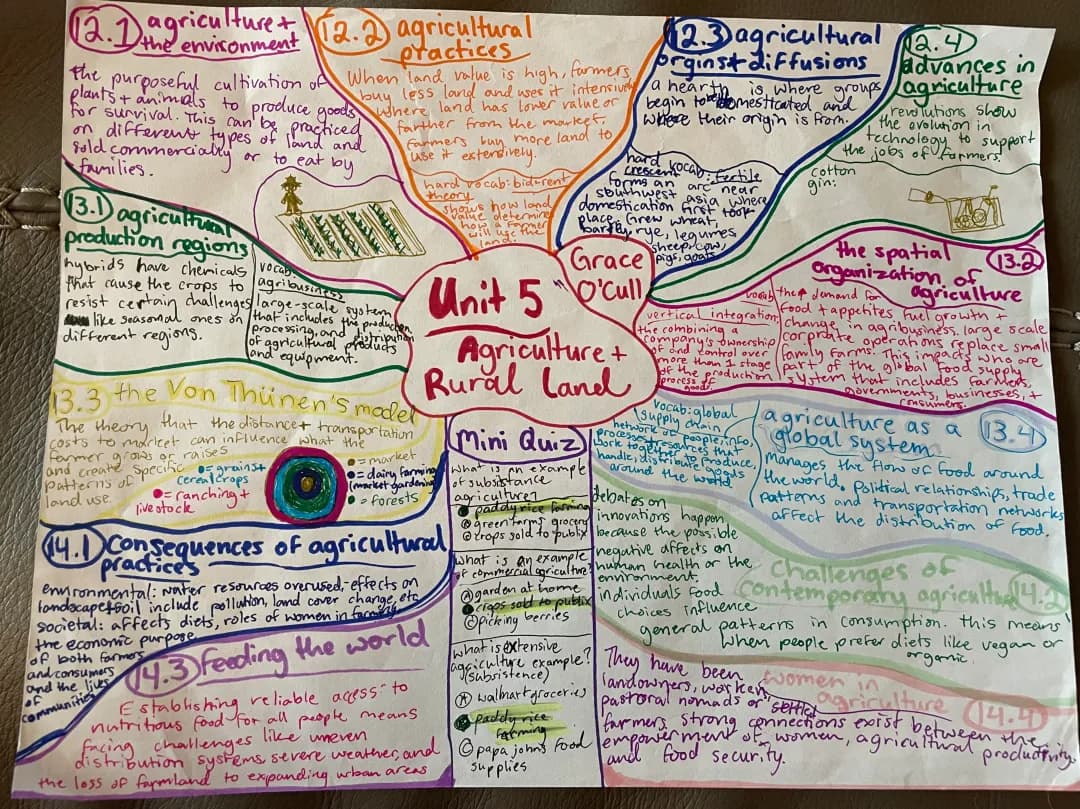 12.1 agriculture +
the environment
the purposeful cultivation of
plants + animals to produce goods
for survival. This can be practiced
on different types of land and
sold commercially or to eat by
families.
12.2 agricultural
practices
When land value is high, farmers
buy less land and uses it intensively
where land has lower value or
farther from the market,
farmers buy more land to
use it extensively.
hard vocab: bid-rent
theory
shows how land
value determines
how a farmer
will use the
land.
12.3 agricultural
orgins + diffusions
a hearth is where groups
begin to be domesticated and
where their origin is from.
hard vocab: fertile
crescent
forms an arc near
southwest asia where
domestication first took
place. Grew wheat,
barley, rye, legumes
sheep, cow,
pigs, goats
12.4
advances in
agriculture
revolutions show
the evolution in
technology to support
the jobs of farmers.
cotton
gin:
13.1 agricultural
production regions
hybrids have chemicals
that cause the crops to
resist certain challenges
like seasonal ones on
different regions.
vocab:
agribusiness
large-scale system
that includes the production,
processing, and distribution
of agricultural products
and equipment.
Unit 5
Agriculture +
Rural Land
Grace
O'Cull
the spatial 13.2
organization of
agriculture
vocab:
vertical integration:
the combining a
company's ownership
of and control over
more than 1 stage
of the production
process of
goods.
the demand for
food + appetites fuel growth +
change in agribusiness. large scale
corprate operations replace small
family farms. This impacts who are
part of the global food supply
system that includes farmers,
governments, businesses, +
consumers.
13.3 the Von Thünen's model
The theory that the distance + transportation
costs to market can influence what the
farmer grows or raises
and create specific
patterns of
land use.
= grains +
cereal crops
= ranching +
livestock
= market
= dairy farming
(market gardening)
= forests
vocab: global
supply chain
network of people, info,
processes + resources that
work together to produce,
handle, distribute goods
around the world
agriculture as a 13.4
global system
manages the flow of food around
the world. Political relationships, trade
patterns and transportation networks
affect the distribution of food.
14.1 Consequences of agricultural
practices
environmental: water resources overused, effects on
landscape + soil include pollution, land cover change, etc
societal: affects diets, roles of women in farming
the economic purpose
of both farmers
and consumers
and the lives
of
communities
Mini Quiz
What is an example
of subsistance
agriculture?
paddy rice farming
green farms grocery
crops sold to publix
What is an example
of commercial agriculture?
A garden at home
crops sold to publix
C picking berries
what is extensive
agriculture example?
(subsistence)
A walmart groceries
paddy rice
farming
C papa johns food
supplies
debates on
innovations happen
because the possible
negative affects on
human health or the
environment.
individuals food
choices influence
general patterns in consumption. this means
when people prefer diets like vegan or
organic.
Challenges of
contemporary agriculture 14.2
14.3 feeding the world
Establishing reliable access to
nutritious food for all people means
facing challenges like uneven
distribution systems, severe weather, and
the loss of farmland to expanding urban areas
women in
agriculture 14.4
They have been
landowners, workers,
pastoral nomads or settled
farmers. strong connections exist between the
empowerment of women, agricultural productivity,
and food security.